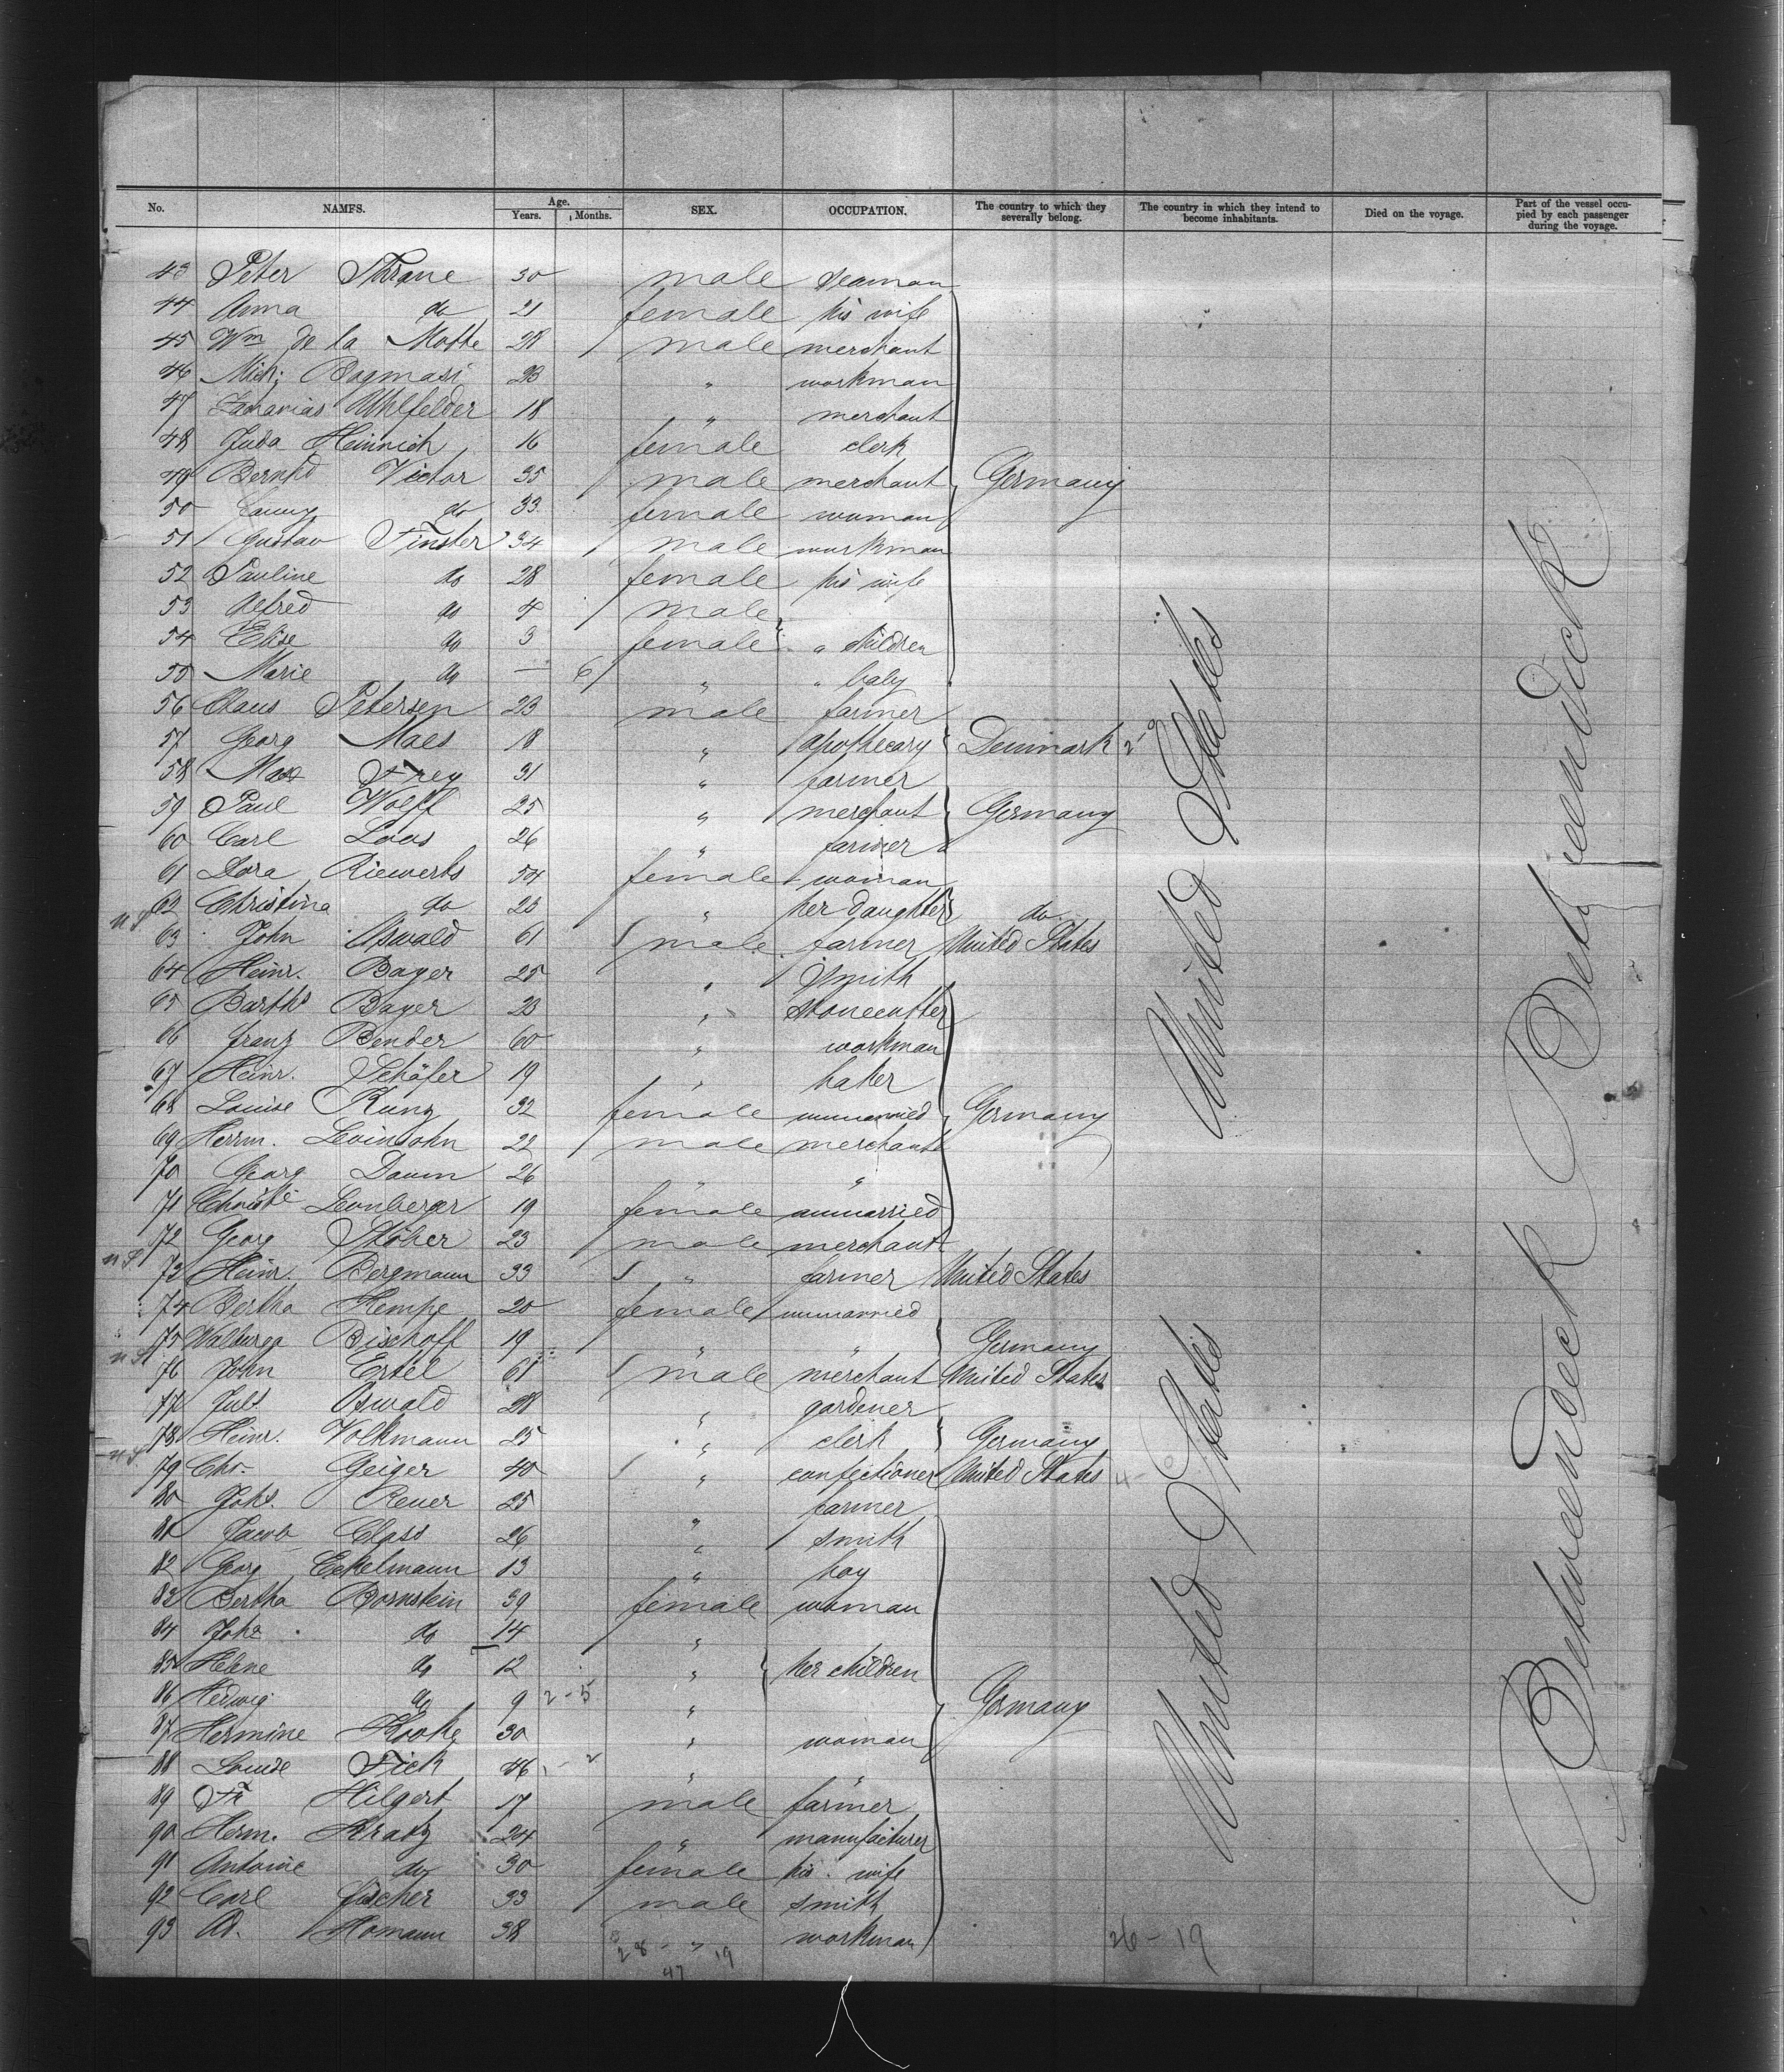 No. NAMES. Age. Years. Months. SEX. OCCUPATION. The country to which they severally belong. The country in which they intend to become inhabitants. Died on the voyage. Part of the vessel occupied by each passenger during the voyage.
43 Peter Thrane 30 male seaman
44 Anna do 21 female his wife
45 Wm de la Motte 28 male merchant
46 Mich; Bagmasi 23 " workman
47 Zacharias Uhlfelder 18 " merchant
48 Juda Heinrich 16 female clerk
49 Bernhd Victor 35 male merchant Germany
50 Fanny do 33 female woman
51 Gustav Finster 34 male workman
52 Pauline do 28 female his wife
53 Alfred do 4 male
54 Elise do 3 female " children
55 Marie do — 6 " " baby
56 Claus Petersen 23 male farmer
57 Georg Maes 18 " apothecary Denmark 2-0
58 Max Frey 31 " farmer
59 Paul Wolff 25 " merchant Germany
60 Carl Loos 26 " farmer
61 Dora Riewerts 54 female woman
62 Christina do 23 " her daughter do
63 John Oswald 61 male farmer United States
64 Heinr. Bager 25 " smith
65 Barths Bager 23 " stonecutter
66 Franz Bender 60 " workman
67 Heinr. Schäfer 19 " baker
68 Louise Kunz 32 female unmarried Germany
69 Herrm. Levinsohn 22 male merchant
70 Georg Daum 26 " "
71 Christe Leonberger 19 female unmarried
72 Georg Stöher 23 male merchant
73 Heinr. Bergmann 33 " farmer United States
74 Bertha Hempe 20 female unmarried
75 Walburga Bischoff 19 " " Germany
76 John Ertel 61 male merchant United States
77 Juls. Oswald 28 " gardener
78 Heinr. Volkmann 25 " clerk Germany
79 Chr. Geiger 40 " confectioner United States 4-0
80 Johs. Reuer 25 " farmer
81 Jacob Class 26 " smith
82 Georg Eckelmann 13 " boy
83 Bertha Bornstein 39 female woman
84 do 14 "
85 Helene do 12 " her children
86 Hedwig do 9 2-5 "
87 Hermine 30 " woman Germany
88 Louise Fick 46 " "
89 Fr Hilgert 17 male farmer
90 Herm. Kratz 24 " manufacturer
91 Antoine do 30 female his wife
92 Carl Fischer 33 male smith
93 Ad. Homann 38 " workman
28 - 19 26-19
47
United States
United States
Betweendeck
Betweendeck